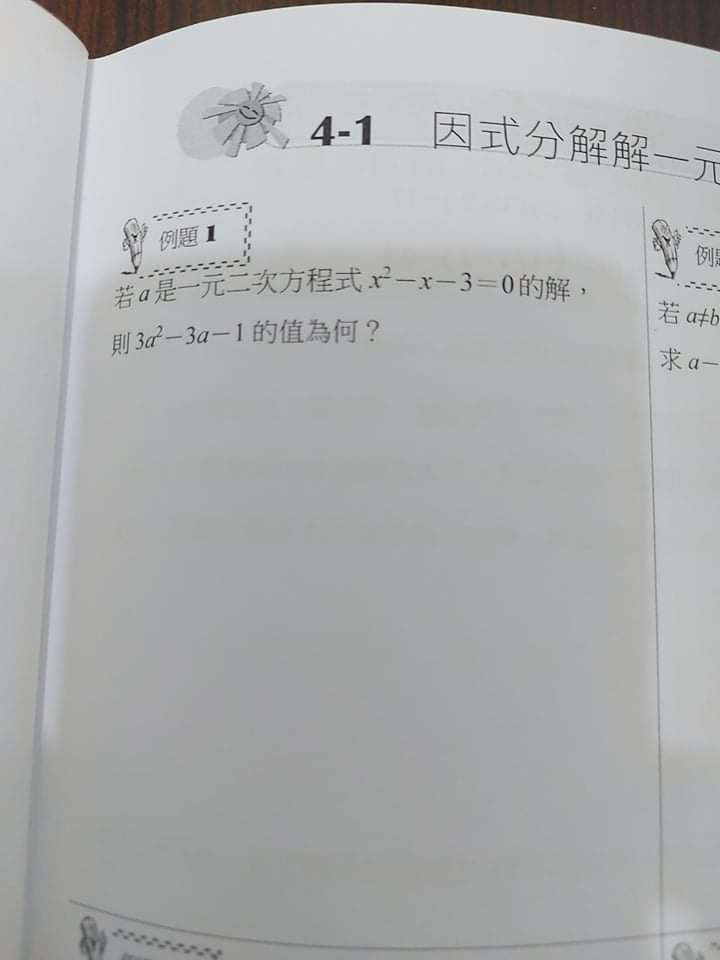 4-1 因式分解解一元
例題 1
若 a 是一元二次方程式 x²－x－3＝0 的解，
則 3a²－3a－1 的值為何？
例
若 a≠b
求 a－